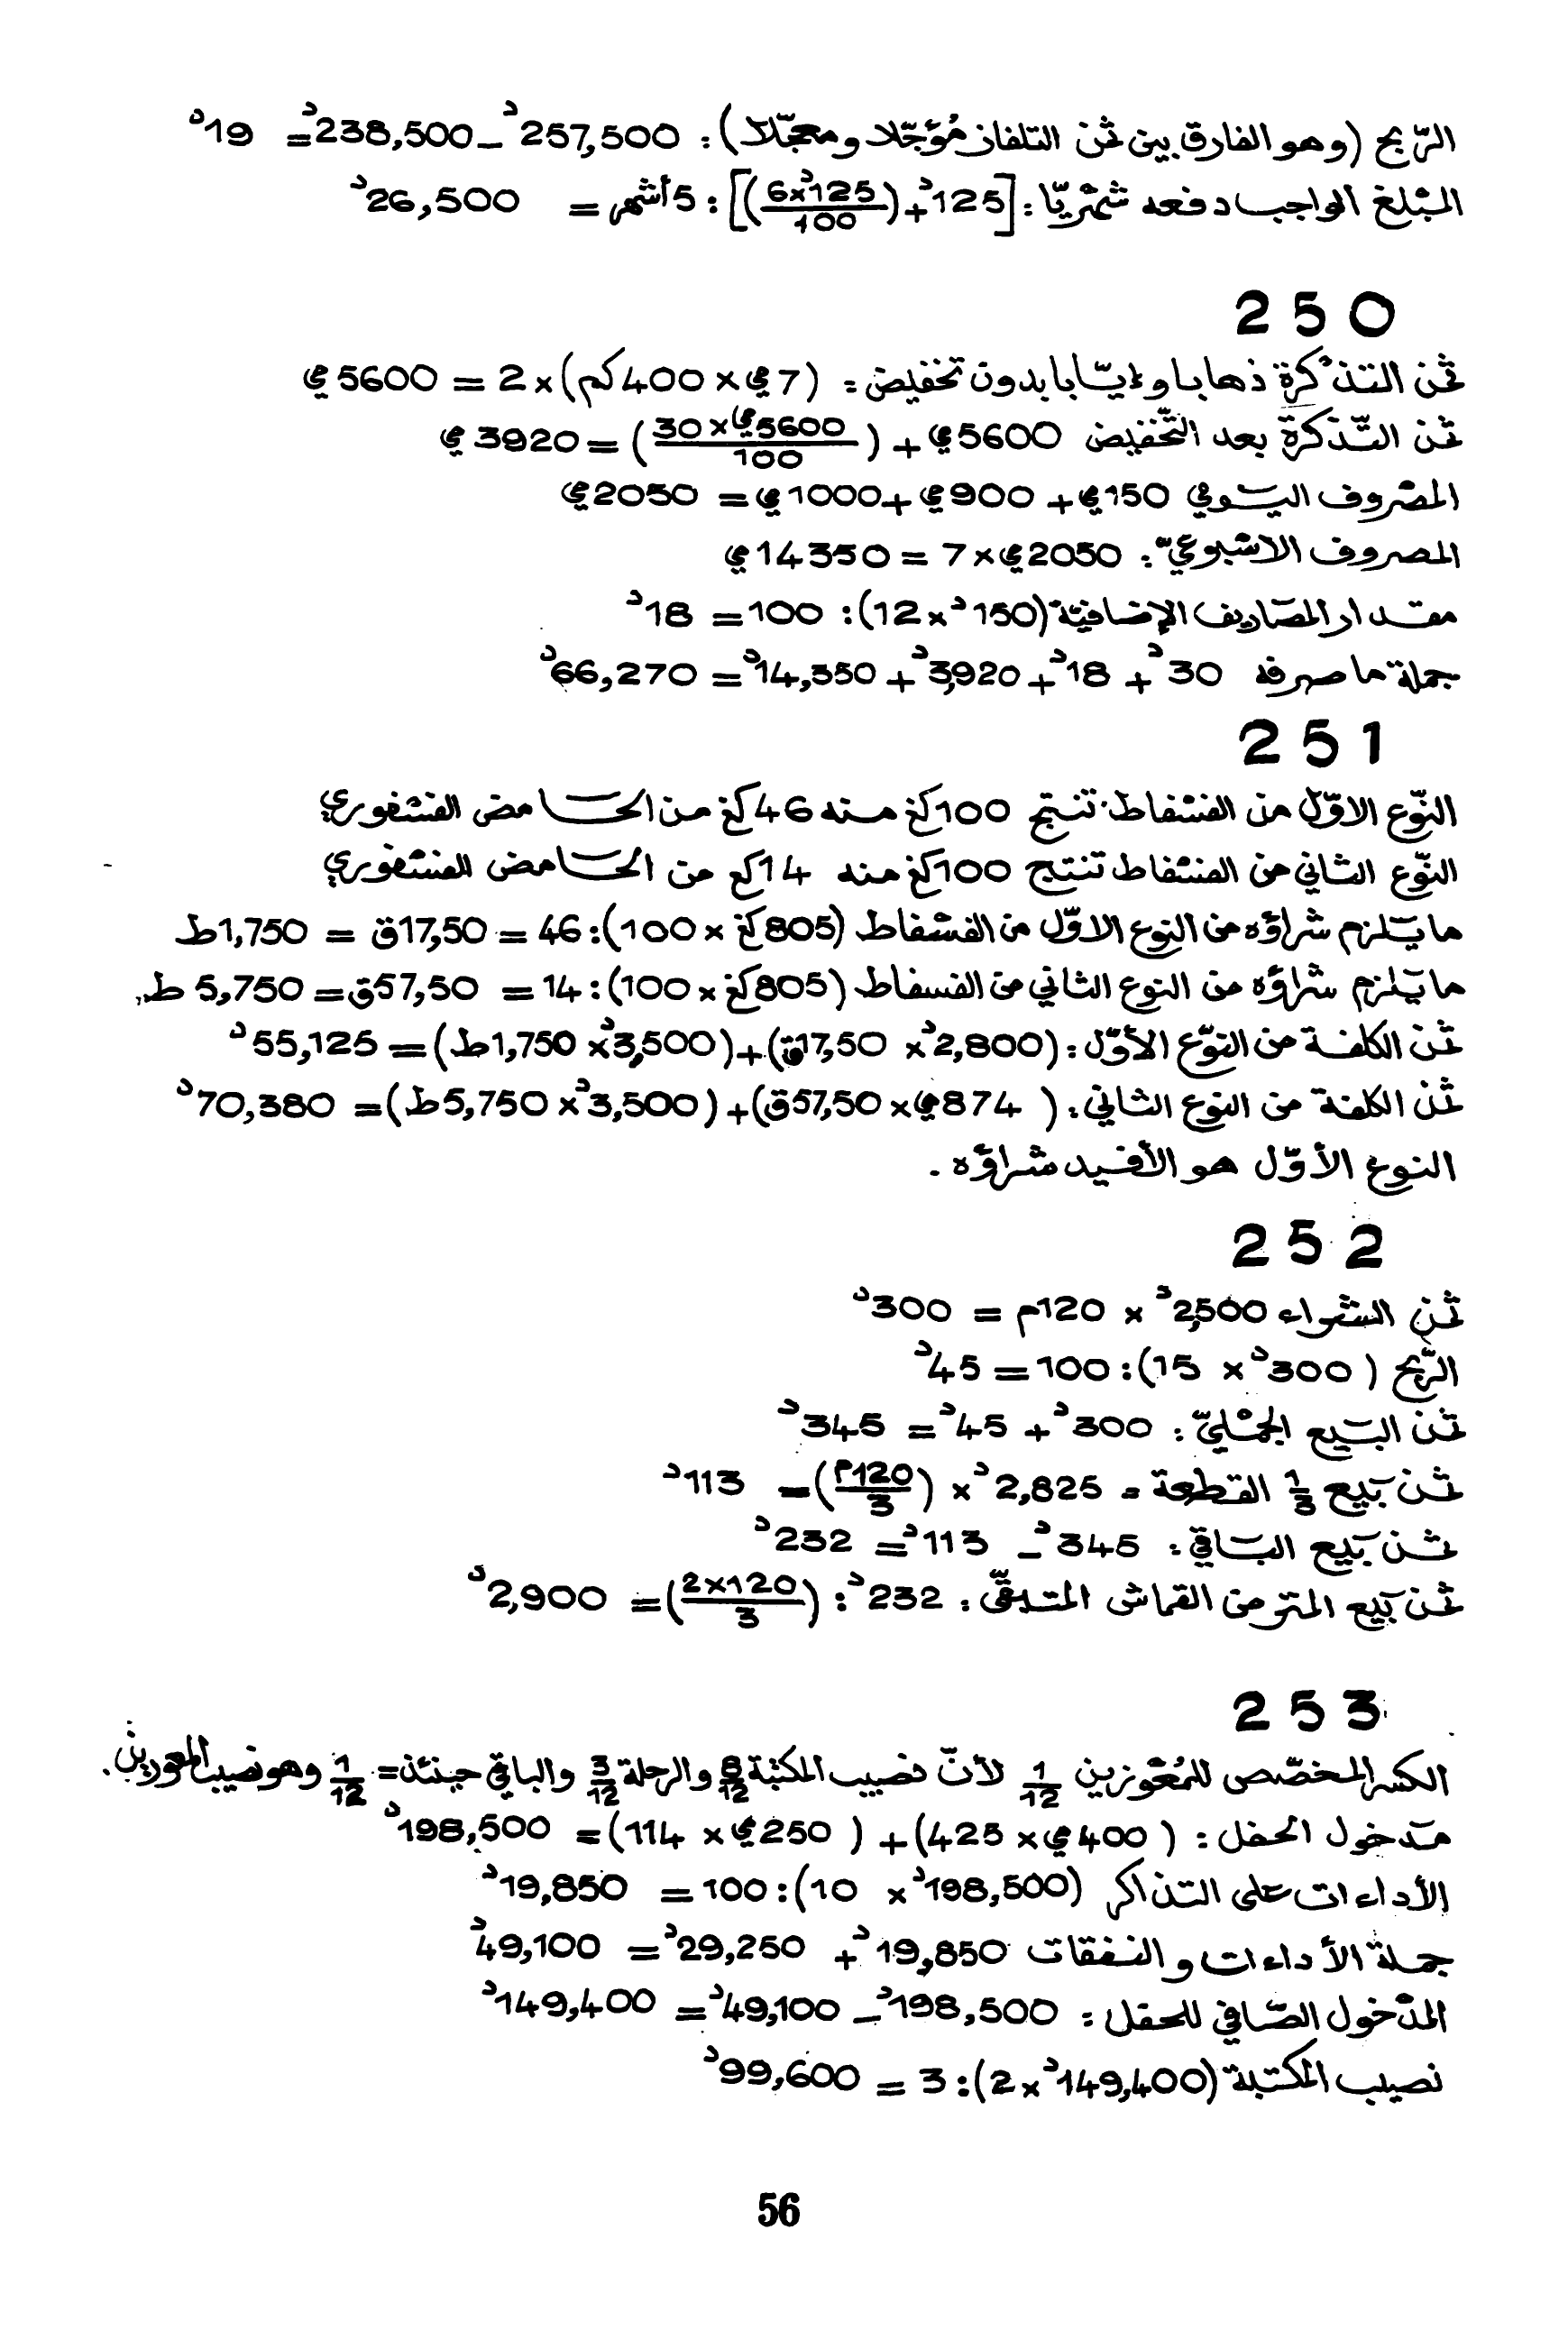 الرّبح (وهو الفارق بين ثمن التلفاز مُؤجّلا ومعجّلا): 257,500د - 238,500د = 19د
المبْلغ الواجب دفعه شهْريّا: [125د + (6x125د/100)] : 5 أشهر = 26,500د
250
ثمن التذْكرة ذهابا وإيّابا بدون تخفيض: (7مي x 400كم) x 2 = 5600مي
ثمن التّذكرة بعد التّخفيض 5600مي + (5600مي x 30/100) = 3920مي
المصْروف اليـومي 150مي + 900مي + 1000مي = 2050مي
المصروف الاسْبوعيّ: 2050مي x 7 = 14350مي
مقدار المصَاريف الإضافيّة (150د x 12) : 100 = 18د
جملة ما صرفه 30د + 18د + 3,920د + 14,350د = 66,270د
251
النّوع الاوّل من الفسْفاط تنتج 100كغ منه 46كغ من الحـامض الفسْفوري
النّوع الثاني من الفسْفاط تنتج 100كغ منه 14كغ من الحـامض الفسْفوري
ما يَلزم شراؤه من النوع الاوّل من الفسْفاط (805كغ x 100) : 46 = 17,50ق = 1,750ط
ما يَلزم شراؤه من النوع الثاني من الفسفاط (805كغ x 100) : 14 = 57,50ق = 5,750ط
ثمن الكلفة من النوّع الأوّل: (2,800د x 17,50ق) + (3,500د x 1,750ط) = 55,125د
ثمن الكلفة من النوع الثاني: (874مي x 57,50ق) + (3,500د x 5,750ط) = 70,380د
النوع الأوّل هو الأفيد شراؤه .
252
ثمن الشراء 2,500د x 120م = 300د
الرّبح (300د x 15) : 100 = 45د
ثمن البيع الجمْليّ: 300د + 45د = 345د
ثمن بَيع 1/3 القطعة = 2,825د x (120م/3) = 113د
ثمن بَيع البـاقي: 345د - 113د = 232د
ثمن بَيع المتر من القماش المتبقّي: 232د : (2x120/3) = 2,900د
253
الكسْر المخصّص للمُعْوزين 1/12 لأنّ نصيب المكتبة 8/12 والرحلة 3/12 والباقي حينئذ = 1/12 وهو نصيب المعوزين.
مَدخول الحفل: (400مي x 425) + (250مي x 114) = 198,500د
الأداءات على التذاكر (198,500د x 10) : 100 = 19,850د
جملة الأداءات والنفقات 19,850د + 29,250د = 49,100د
المدْخول الصّافي للحفل: 198,500د - 49,100د = 149,400د
نصيب المكتبة (149,400د x 2) : 3 = 99,600د
56